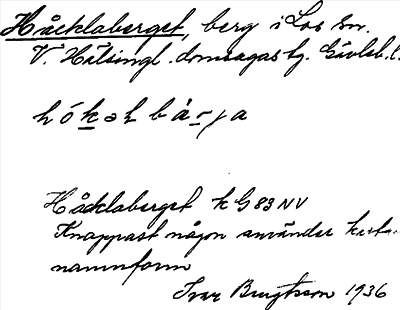 Håcklaberget, berg i Los sn.
V. Hälsingl. domsagas tg. Gävleb. l.
hó̱kəlbá̱rja
Håcklaberget k G 83 NV
Knappast någon använder kart-
namnform
Ivar Bengtsson 1936